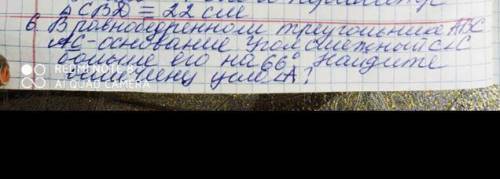 ACBD = 22 см
6. В равнобедренном треугольнике ABC
AC-основание угол смежный с ∠C
больше его на 66° Найдите
величину угла ∠A?
REDMI NOTE 8
AI QUAD CAMERA